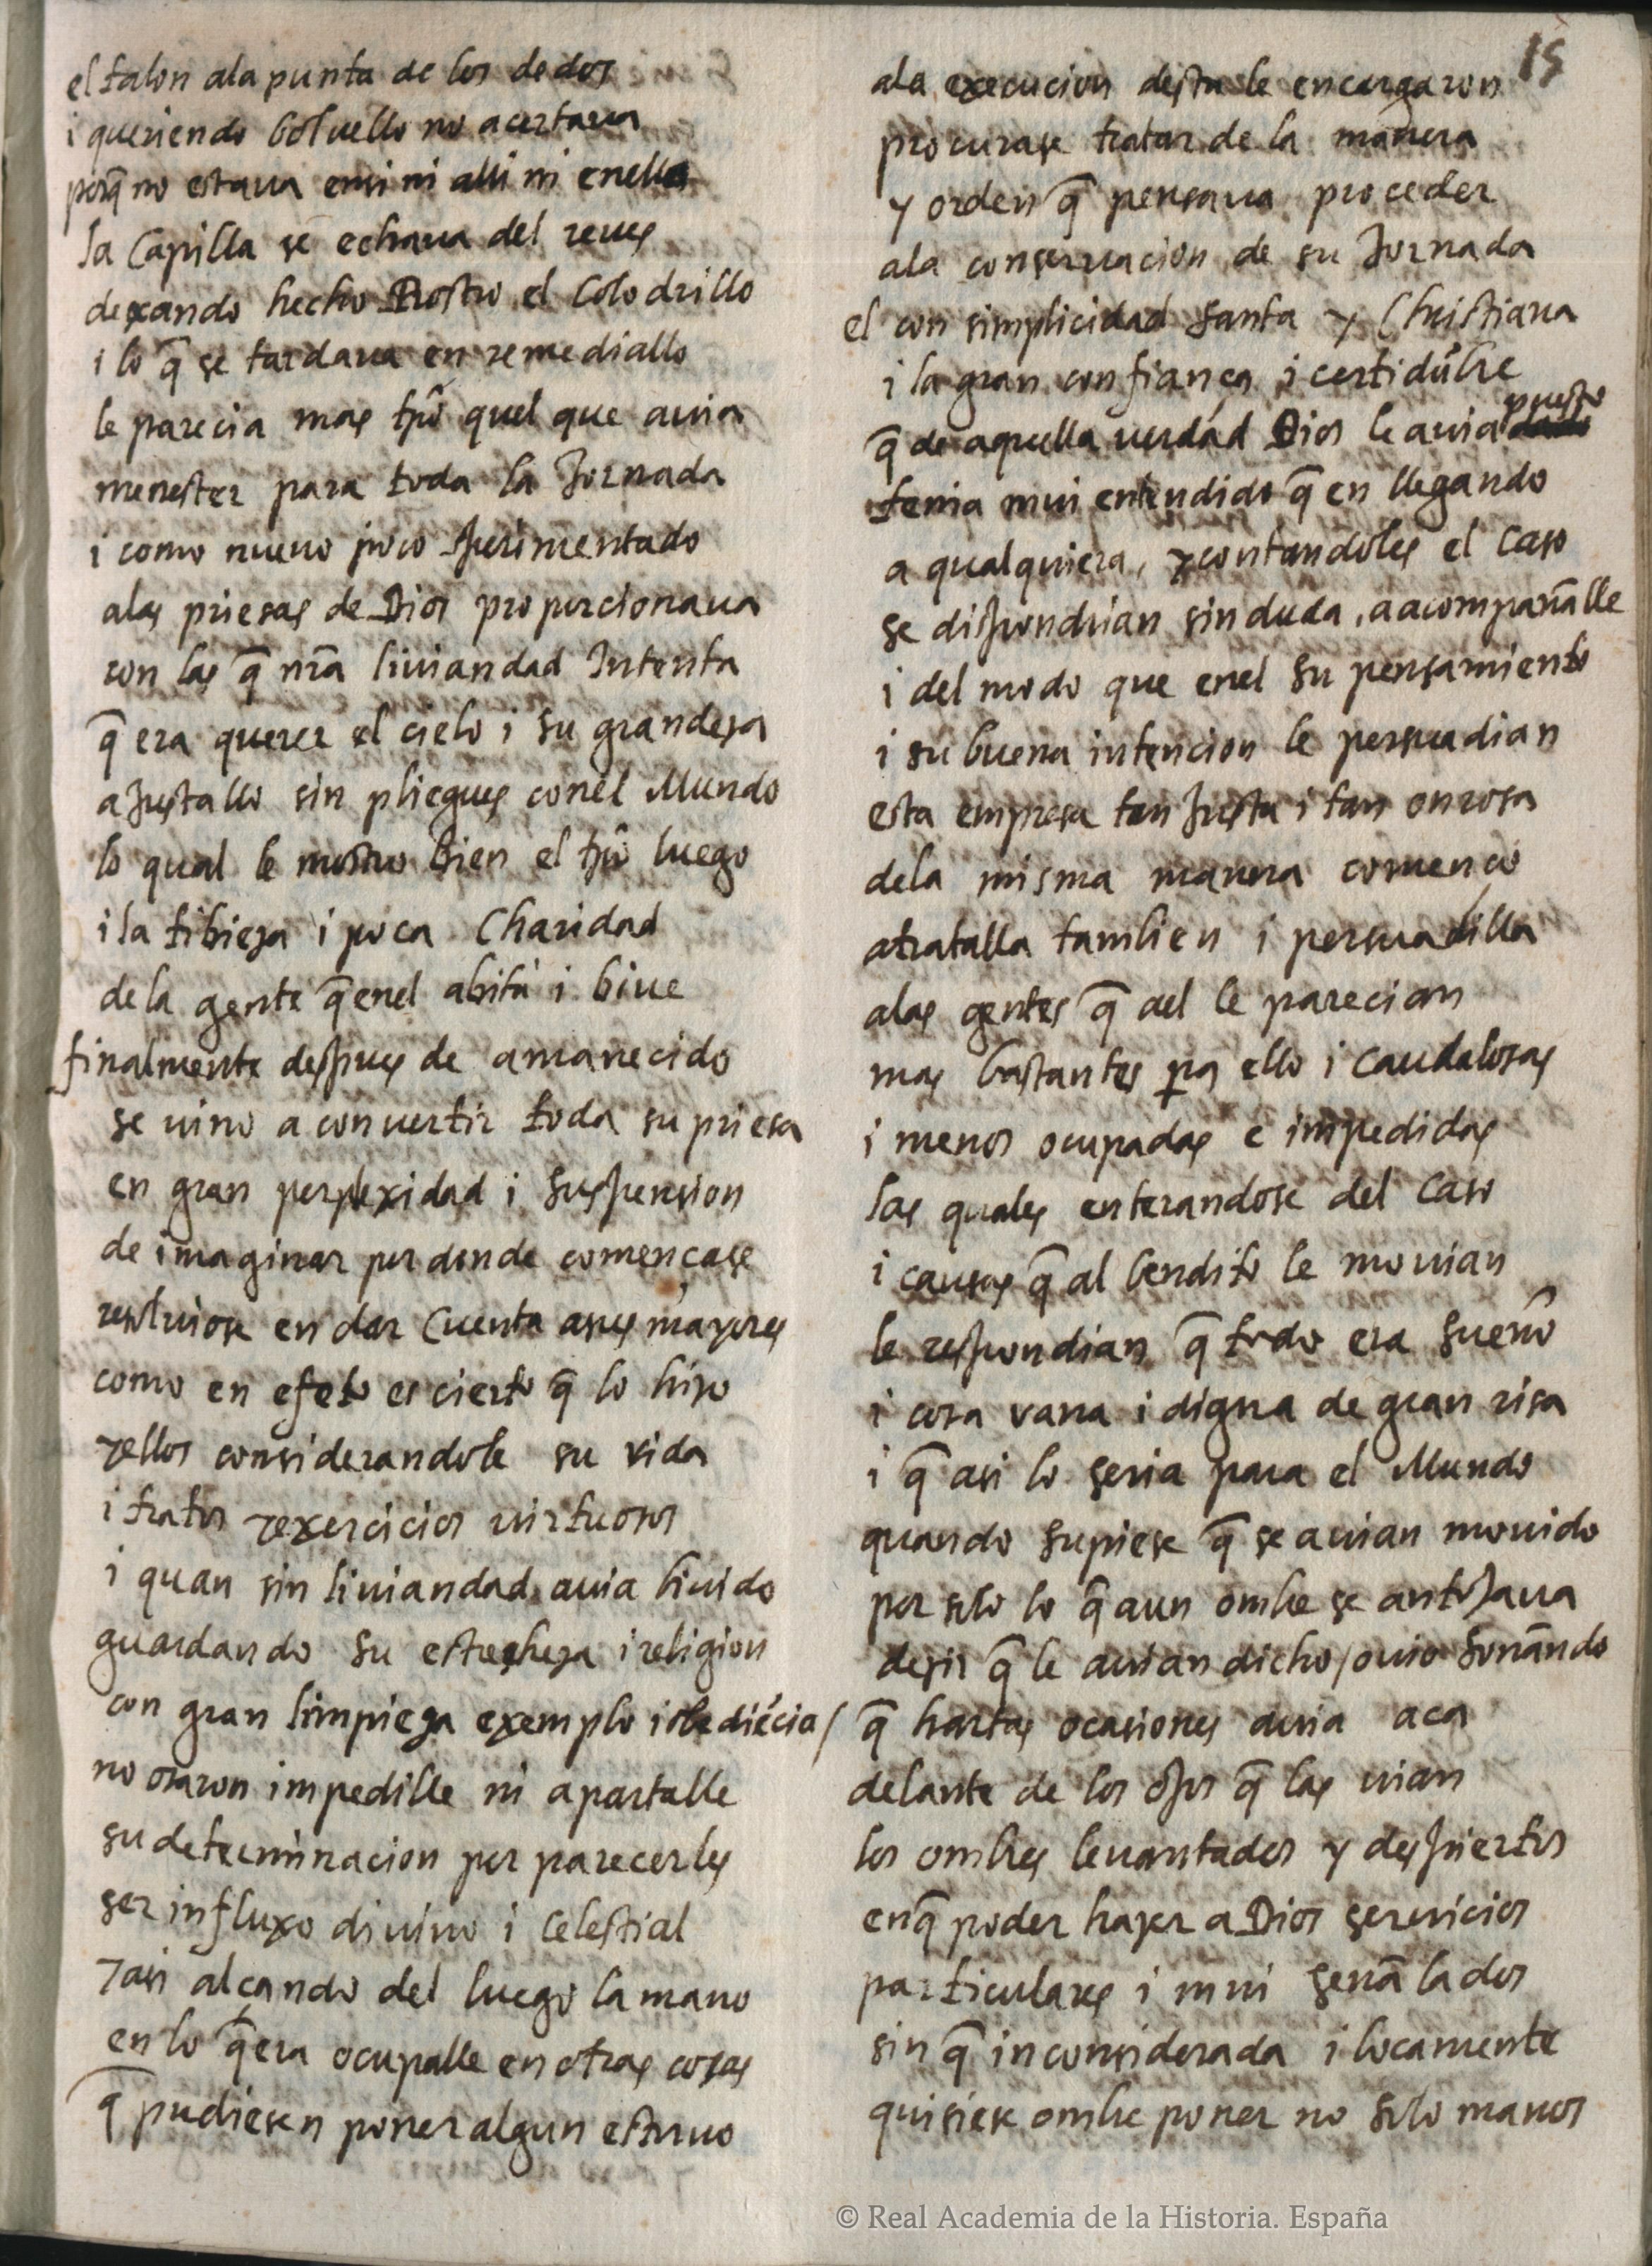 15
el talon ala punta de los dedos
i queriendo boluello no acertaua
porq̃ no estaua ensi ni alli ni enella
la Capilla se echaua del reues
dexando hecho Rostro el Colodrillo
i lo q̃ se tardaua en remediallo
le parecia mas tp̃o quel que auia
menester para toda la Jornada
i como nueuo poco sperimentado
alas priesas de Dios proporcionaua
con las q̃ nr̃a liuiandad Intenta
q̃ era querer el cielo i su grandeza
aJustallo sin pliegues conel Mundo
lo qual le mostro bien el tp̃o luego
i la tibieza i poca Charidad
de la gente q̃ enel abita i biue
finalmente despues de amanecido
se uino a conuertir toda su priesa
en gran perplexidad i suspension
de imaginar por donde començase
resoluiose en dar Cuenta asus mayores
como en efeto es cierto q̃ lo hizo
yellos considerandole su vida
i tratos yexercicios uirtuosos
i quan sin liuiandad auia biuido
guardando su estrecheza i religion
con gran limpieza exemplo i obediẽcia/
no osaron impedille ni apartalle
su determinacion por parecerles
ser influxo diuino i Celestial
yasi alçando del luego la mano
en lo q̃ era ocupalle en otras cosas
q̃ pudiesen poner algun estoruo
ala execucion desta le encargaron
procurase tratar de la manera
y orden q̃ pensaua proceder
ala conseruacion de su Jornada
el con simplicidad santa y Christiana
i la gran confiança i certidũbre
q̃ de aquella uerdad Dios le auia puesto
tenia mui entendido q̃ en llegando
a qualquiera, ycontandoles el caso
se dispondrian sin duda, aacompañalle
i del modo que enel su pensamiento
i su buena intencion le persuadian
esta empresa tan Justa i tan onrosa
dela misma manera començo
atratalla tambien i persuadilla
alas gentes q̃ ael le parecian
mas bastantes pa ello i caudalosas
i menos ocupadas e impedidas
las quales enterandose del caso
i causas q̃ al bendito le mouian
le respondian q̃ todo era sueño
i cosa vana i digna de gran risa
i q̃ asi lo seria para el Mundo
quando supiese q̃ se auian mouido
por solo lo q̃ aun ombre se antoJaua
dezir q̃ le auian dicho/ouio soñando
q̃ hartas ocasiones auia aca
delante de los oJos q̃ las uian
los ombres leuantados y despiertos
enq̃ poder hazer a Dios seruicios
particulares i mui señalados
sin q̃ inconsiderada i locamente
quisiese ombre poner no solo manos
© Real Academia de la Historia. España